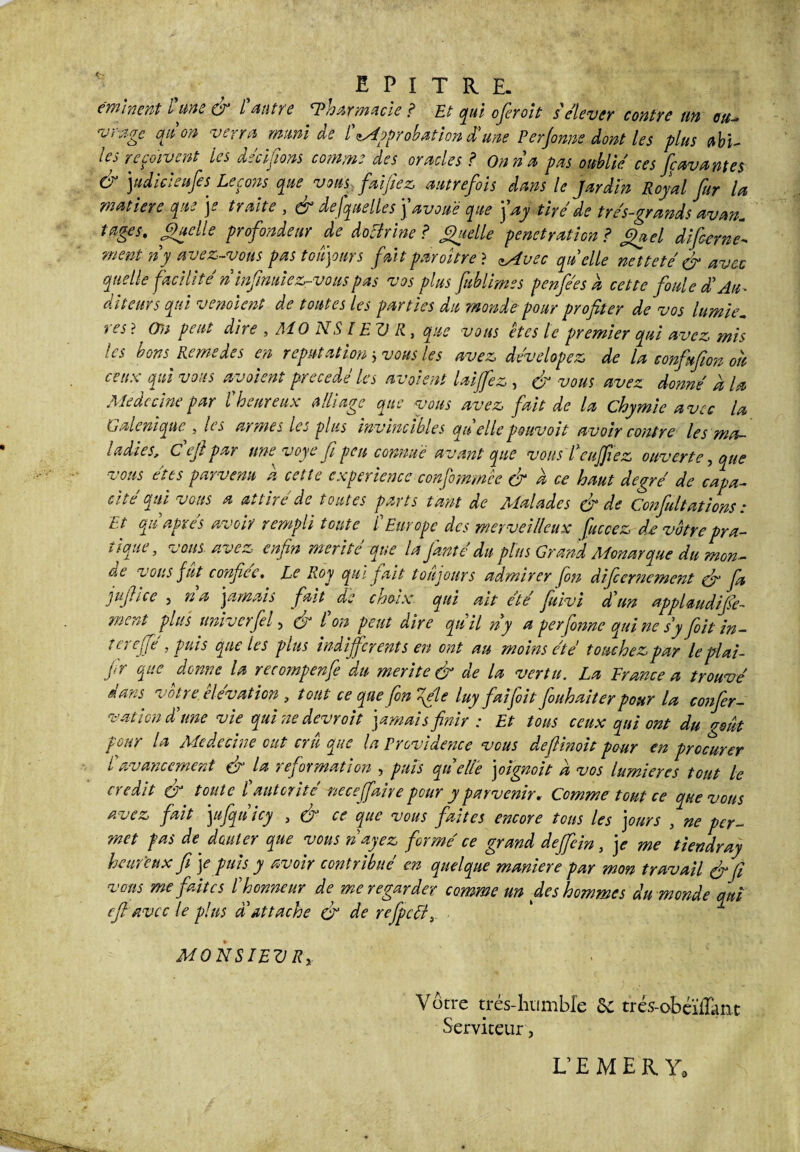 EPITRE.
éminent l'une & l'autre Pharmacie ? Et qui oſeroit s'élever contre un ou-
vrage qu'on verra muni de l'Approbation d'une Perſonne dont les plus abi-
les reçoivent les déciſions comme des oracles ? On n'a pas oublié ces ſçavantes
& judicieuſes Leçons que vous faiſiez autrefois dans le Jardin Royal ſur la
matiere que je traite , & deſquelles j'avouë que j'ay tiré de trés-grands avan-
tages. Quelle profondeur de doctrine ? Quelle penetration ? Quel diſcerne-
ment n'y avez-vous pas toûjours fait paroître ? Avec qu'elle netteté & avec
quelle facilité n'inſinuiez-vous pas vos plus ſublimes penſées à cette foule d'Au-
diteurs qui venoient de toutes les parties du monde pour profiter de vos lumie-
res ? On peut dire , MONSIEUR, que vous êtes le premier qui avez mis
les bons Remedes en reputation ; vous les avez dévelopez de la confuſion où
ceux qui vous avoient precedé les avoient laiſſez , & vous avez donné à la
Medecine par l'heureux alliage que vous avez fait de la Chymie avec la
Galenique , les armes les plus invincibles qu'elle pouvoit avoir contre les ma-
ladies. C'eſt par une voye ſi peu connuë avant que vous l'euſſiez ouverte, que
vous êtes parvenu à cette experience conſommée & à ce haut degré de capa-
cité qui vous a attiré de toutes parts tant de Malades & de Conſultations :
Et qu'aprés avoir rempli toute l'Europe des merveilleux ſuccez de vôtre pra-
tique, vous avez enfin merité que la ſanté du plus Grand Monarque du mon-
de vous fût confiée. Le Roy qui fait toûjours admirer ſon diſcernement & ſa
juſtice , n'a jamais fait de choix qui ait été ſuivi d'un applaudiſſe-
ment plus univerſel , & l'on peut dire qu'il n'y a perſonne qui ne s'y ſoit in-
tereſſé , puis que les plus indifferents en ont au moins été touchez par le plai-
ſir que donne la recompenſe du merite & de la vertu. La France a trouvé
dans vôtre élévation , tout ce que ſon Zéle luy faiſoit ſouhaiter pour la conſer-
vation d'une vie qui ne devroit jamais finir : Et tous ceux qui ont du goût
pour la Medecine ont crû que la Providence vous deſtinoit pour en procurer
l'avancement & la reformation , puis qu'elle joignoit à vos lumieres tout le
credit & toute l'autorité neceſſaire pour y parvenir. Comme tout ce que vous
avez fait juſqu'icy , & ce que vous faites encore tous les jours , ne per-
met pas de douter que vous n'ayez formé ce grand deſſein, je me tiendray
heureux ſi je puis y avoir contribué en quelque maniere par mon travail & ſi
vous me faites l'honneur de me regarder comme un des hommes du monde qui
eſt avec le plus d'attache & de reſpect,
MONSIEUR,
Vôtre trés-humble & trés-obéïſſant
Serviteur,
L'EMERY.